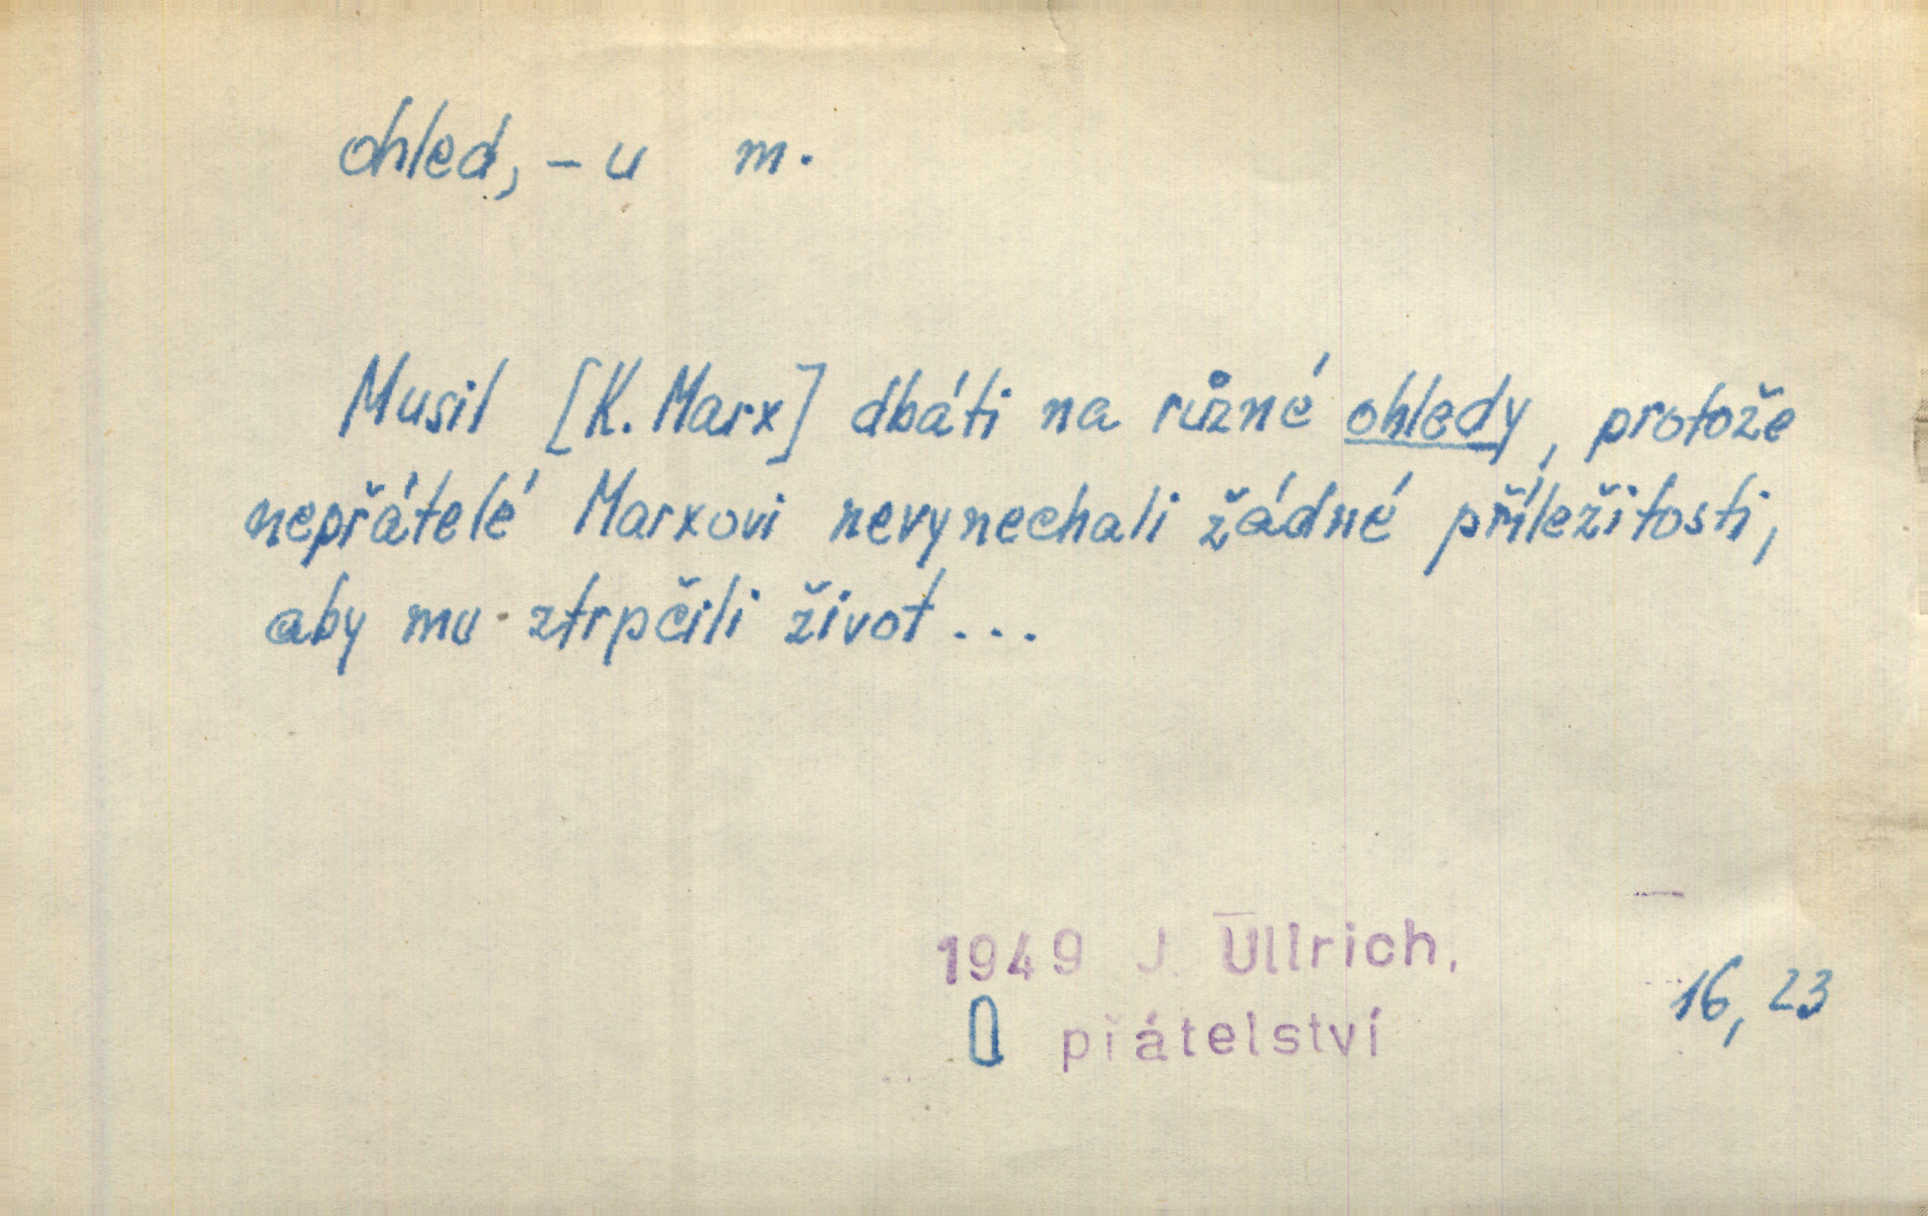 ohled, -u m.
Musil [K. Marx] dbáti na různé ohledy, protože
nepřátelé Marxovi nevynechali žádné příležitosti,
aby mu ztrpčili život...
1949 J. Ullrich,
O přátelství
16, 23